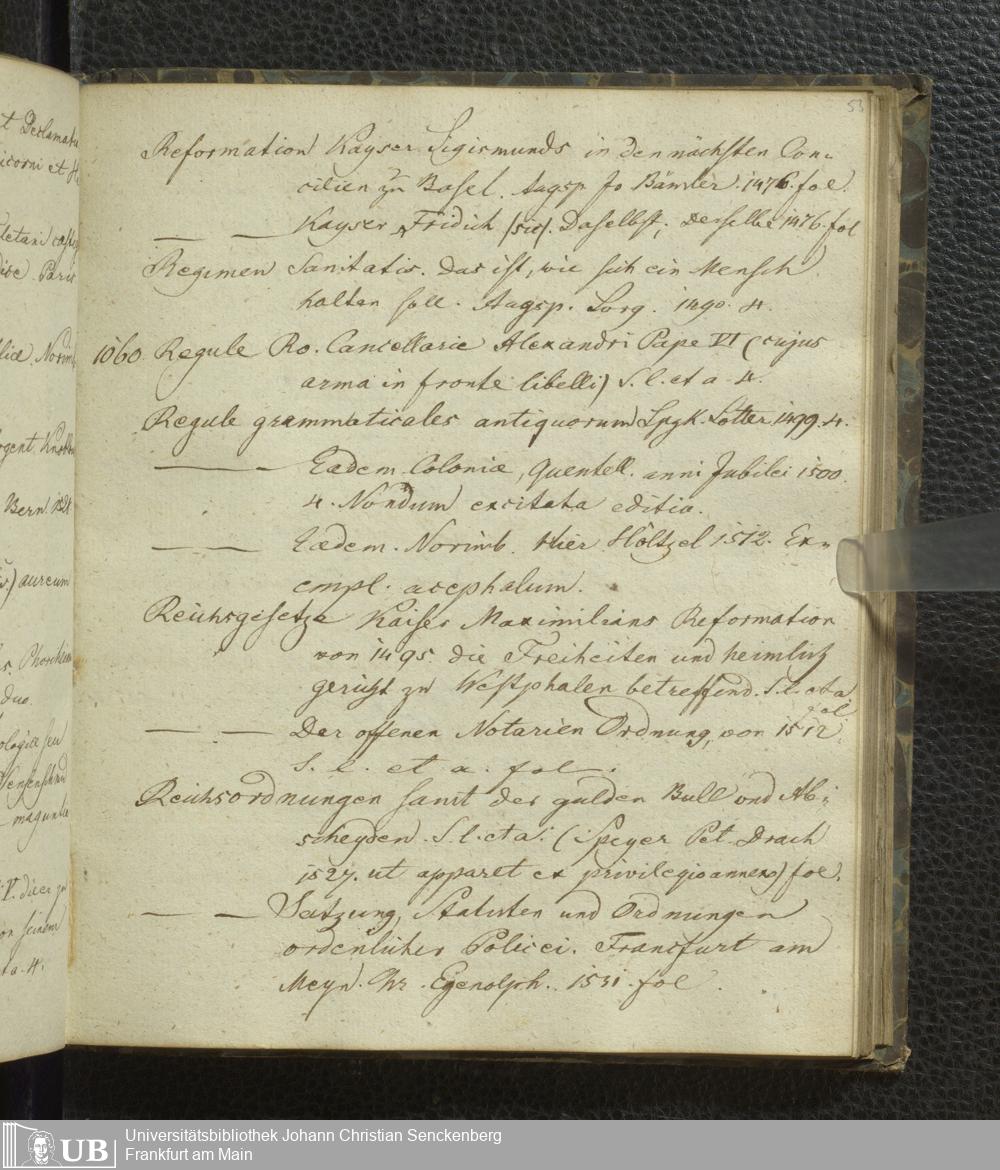 53
Reformation Kayser Sigismunds in den nächsten Con-
cilien zu Basel. Augsp. Jo Bämler. 1476. fol.
— — Kayser Fridich (sic). Daselbst, derselbe 1476. fol
Regimen Sanitatis. das ist, wie sich ein Mensch
halten soll. Augsp. Sorg. 1490. 4.
1060. Regule Ro. Cancellarie Alexandri Pape VI (cujus
arma in fronte libelli) S. l. et a. 4.
Regule grammaticales antiquorum Lpzk. Lotter. 1499. 4.
— Eædem. Coloniæ, Quentell. anni Jubilei 1500.
4. Nondum excitata editio.
— — Eædem. Norimb. Hier Höltzel 1512. Ex-
empl. acephalum.
Reichsgesetze Kaiser Maximilians Reformation
von 1495. die Freiheiten und heimlich
gericht zu Westphalen betreffend. S. l. et a.
fol.
— — Der offenen Notarien Ordnung, von 1512.
S. l. et a. fol.
Reichsordnungen samt der gulden Bull vnd Ab-
scheyden. S. l. et a. (Speyer Pet. Drach
1527. ut apparet ex privilegio annexo) fol.
— — Satzung, Statuten und Ordnungen
ordenlicher Policei. Francfurt am
Meyn. Chr. Egenolph. 1531. fol.
et Declamati
icorni et
Paris
Bern.
aureum
duo
ta. 4.
UB
Universitätsbibliothek Johann Christian Senckenberg
Frankfurt am Main